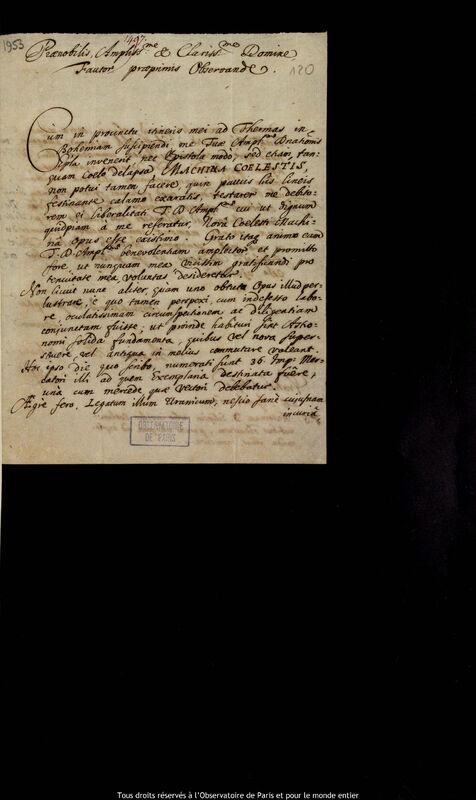 1953
1497.
120
Prænobilis, Ampliss.me & Clariss.me Domine
Fautor præprimis Observande.
Cum in procinctu itineris mei ad Thermas in
Bohemiam suscipiendi me Tuæ
Epistola invenerit, nec Epistola modo, sed etiam tan-
quam Coelo delapsa MACHINA COELESTIS,
non potui tamen facere, quin paucis his lineis
festinante calamo exaratis, testarer me debito-
rem ei liberalitati T. D. Ampl. cui ut dignum
quidpiam a me referatur, Nova Coelesti Machi-
nâ opus esse existimo. Grato itaq animo eam
T. D. Ampl. benevolentiam amplector, et promitto
fore, ut nunquam mea vicissim gratificandi pro
tenuitate mea voluntas desideretur.
Non licuit nunc aliter, quam uno obtutu Opus illud per-
lustrare, è quo tamen perspexi, cum indefesso labo-
re, oculatissimam circumspectionem ac diligentiam
conjunctam fuisse; ut proinde habituri sint Astro-
nomi solida fundamenta, quibus vel nova super-
struere, vel antiqua in melius commutare valeant.
Hoc ipso die quo scribo, numerati sunt 36. Imp. Mer-
catori illi ad quem Exemplaria destinata fuêre,
unà cum mercede quæ vectori debebatur.
Ægre fero, Legatum illum Uranicum, nescio sanè cujusnam
incuriâ
OBSERVATOIRE
DE PARIS
Tous droits réservés à l'Observatoire de Paris et pour le monde entier